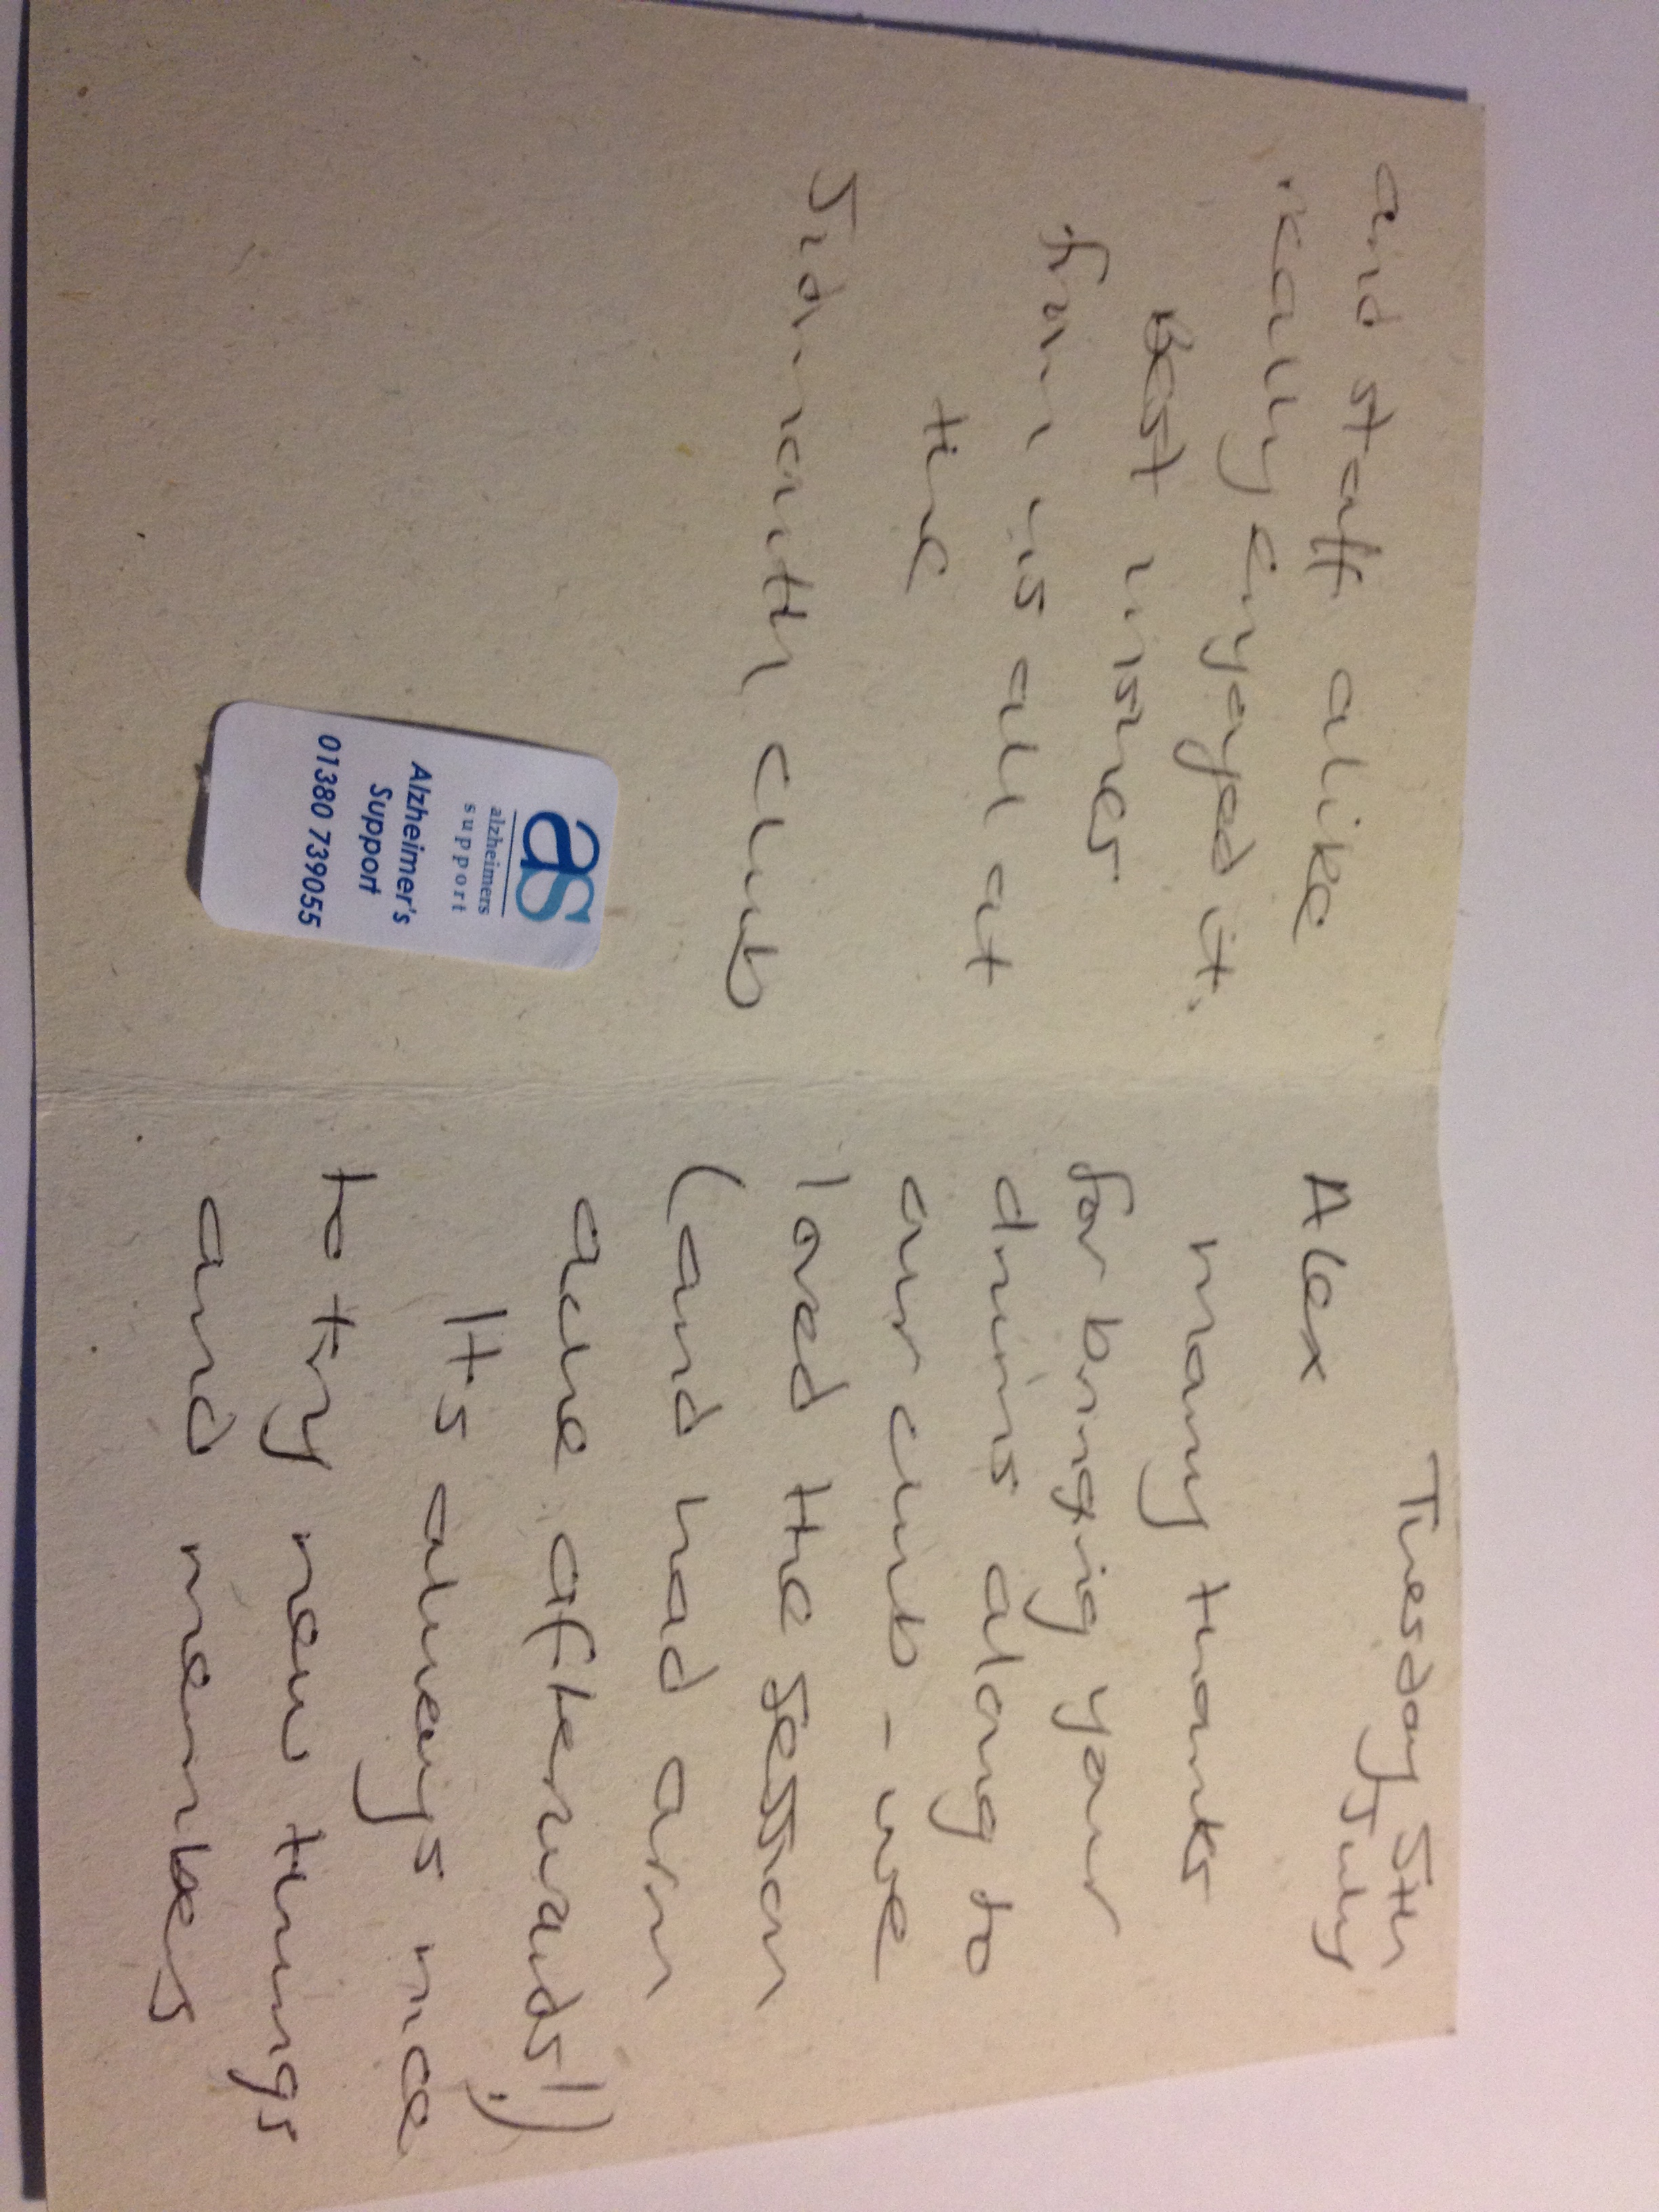 Tuesday 5th
July
Alex
many thanks
for bringing your
drums along to
our club - we
loved the session
(and had arm
ache afterwards!)
It's always nice
to try new things
and members
and staff alike
really enjoyed it.
Best wishes
from us all at
the
Sidmouth club
as
alzheimers
support
Alzheimer's
Support
01380 739055